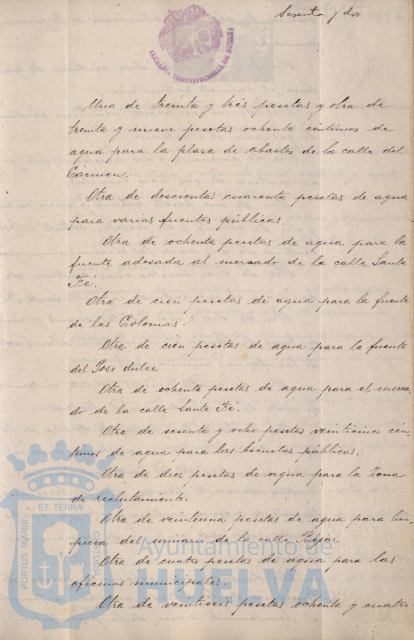 Sesenta y dos
ALCALDIA CONSTITUCIONAL DE HUELVA
Una de treinta y tres pesetas y otra de
treinta y nueve pesetas ochenta céntimos de
agua para la plaza de Abastos de la calle del
Carmen.
Otra de doscientas cuarenta pesetas de agua
para varias fuentes públicas.
Otra de ochenta pesetas de agua para la
fuente adosada al mercado de la calle Santa
Fé.
Otra de cien pesetas de agua para la fuente
de las Colonias.
Otra de cien pesetas de agua para la fuente
del Pozo dulce
Otra de ochenta pesetas de agua para el merca
do de la calle Santa Fé.
Otra de sesenta y ocho pesetas veinticinco cén
timos de agua para las bocas públicas.
Otra de diez pesetas de agua para la Zona
de reclutamiento.
Otra de veintiuna pesetas de agua para lim
pieza del urinario de la calle Béjar
Otra de cuatro pesetas de agua para las
oficinas municipales.
Otra de veintiseis pesetas ochenta y cuatro
PORTUS MARIS ET TERRAE CUSTODIA
Ayuntamiento de
HUELVA